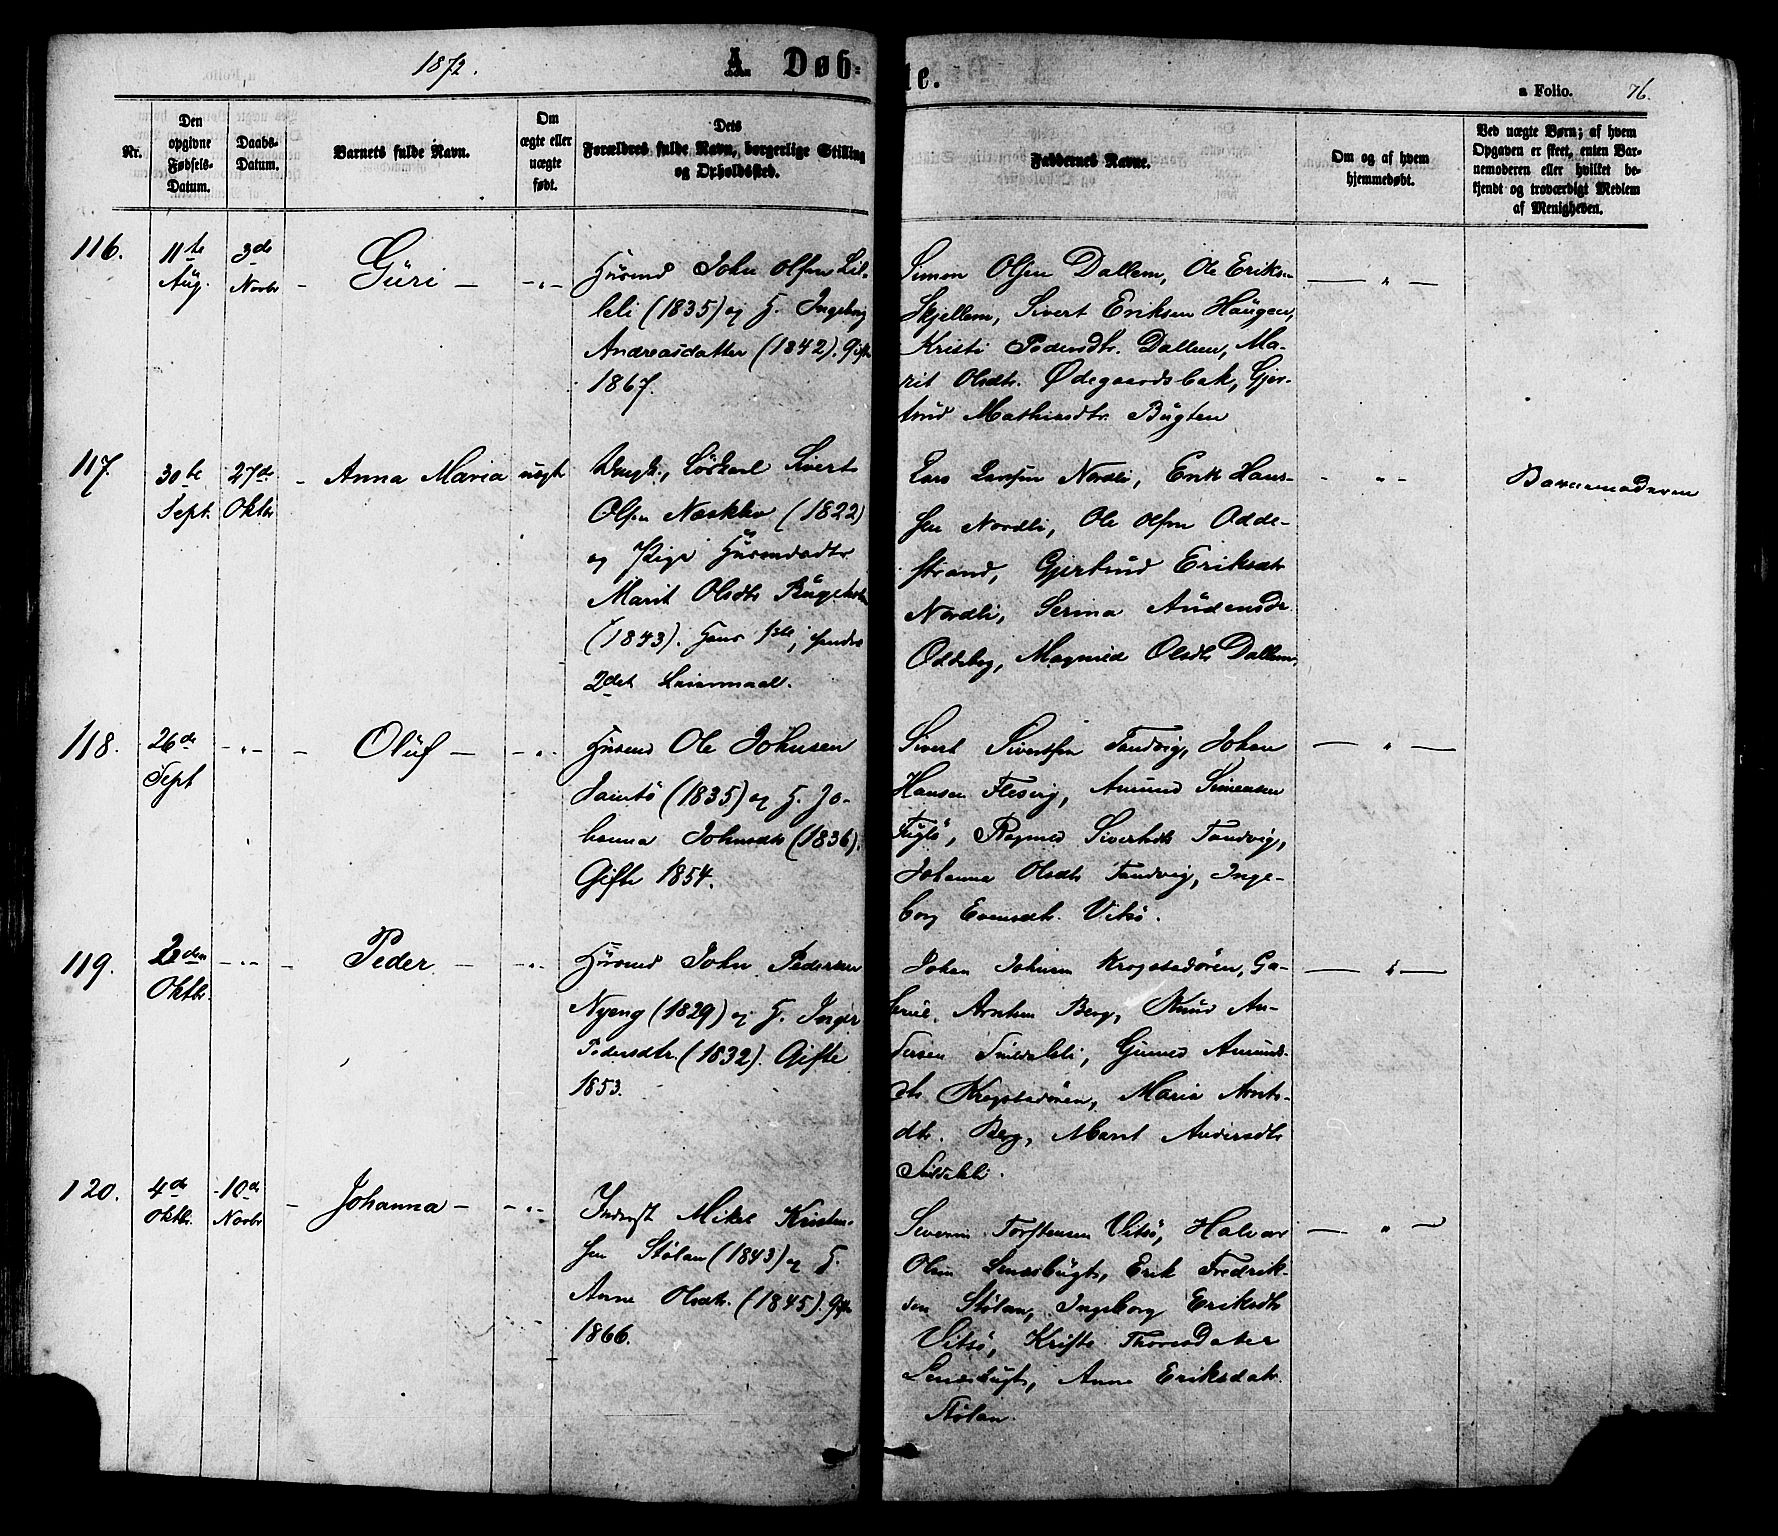 1872.
A Døb-
te.
a Folio. 76.
Nr.
Den
opgivne
Fødsels-
Datum.
Daabs-
Datum.
Barnets fulde Navn.
Om
ægte eller
uægte
født.
Dets
Forældres fulde Navn, borgerlige Stilling
og Opholdssted.
Faddernes Navne.
Om og af hvem
hjemmedøbt.
Ved uægte Børn; af hvem
Opgaven er skeet, enten Bar-
nemoderen eller hvilket be-
kjendt og troværdigt Medlem
af Menigheden.
116.
11te
Aug.
3de
Novbr
Guri
Husmd John Olsen Lil-
leli (1835) og H. Ingeborg
Andreasdatter (1842). Gifte
1867.
Simon Olsen Dallem, Ole Eriks.
Skjellem, Sivert Eriksen Haugen,
Kristi Pedersdtr. Dallem, Ma-
rit Olsdtr. Ødegaardsbak, Gjer-
trud Mathiasdtr. Bugten
117.
30te
Sept.
27de
Oktbr
Anna Maria
uægte
Ungk., Løskarl Sivert
Olsen (1822)
og Pige Husmdsdtr
Marit Olsdtr
(1843). Hans 1ste, hendes
2det Leiermaal.
Lars Larssen Nordli, Erik Han-
sen Nordli, Ole Olsen Odde-
strand, Gjertrud Eriksdtr
Nordli, Serina Audensdr
Oddeberg, Magnild Olsdtr Dallem.
Barnemoderen
118.
26de
Sept
- " -
Oluf
Husmd Ole Johnsen
(1835) og H. Jo-
hanna Johnsdtr (1836).
Gifte 1854.
Sivert Sivertsen Tandvig, Johan
Hansen Flesvig, Amund Simensen
Fuglø, Ragnild Sivertsdtr Tandvig,
Johanna Olsdtr Tandvig, Inge-
borg Evensdtr. Vitsø.
119.
2den
Oktbr.
- " -
Peder
Husmd John Pedersen
Nyeng (1829) og H. Inger
Pedersdtr. (1832). Gifte
1853.
Johan Johnsen Krogstadøren, Ga-
briel Arntsen Berg, Knud An-
dersen Sildeli, Gunild Amund-
dtr Krogstadøren, Maria Arnts-
dtr. Berg, Marit Andersdtr
Sildeli.
120.
4de
Oktbr.
10de
Novbr
Johanna
Inderst Mikal Kristen-
sen Stølan (1843) og H.
Anne Olsdtr. (1845). Gifte
1866.
Severin Torstensen Vitsø, Halvor
Olsen Lenesbugt, Erik Fredrik-
sen Stølan, Ingeborg Eriksdtr
Vitsø, Kristi Thoresdatter
Lenesbugt, Anne Eriksdatr.
Stølan.